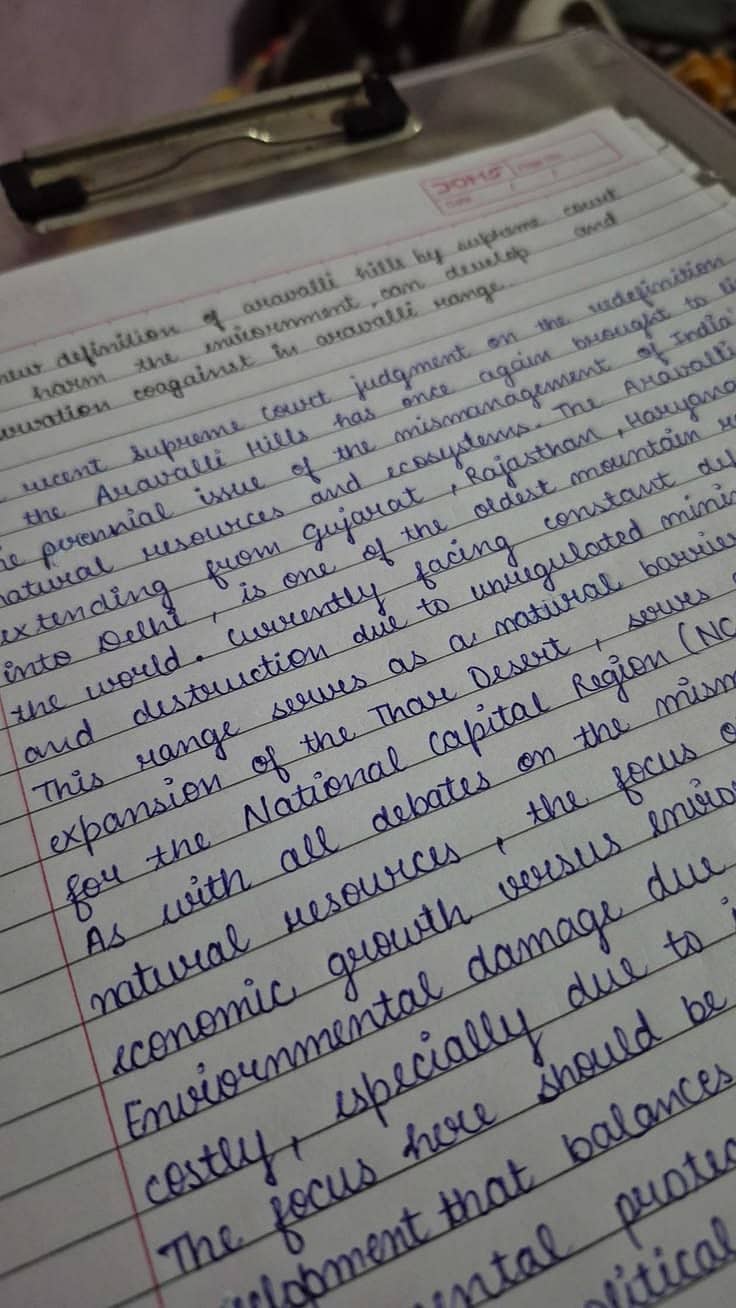 JOMS
Date
new definition of aravalli hills by supreme court
harm the enviornment, can develop and
coagainst in aravalli range.
recent supreme court judgment on the redefinition
the Aravalli Hills has once again brought to
the perennial issue of the mismanagement of India'
natural resources and ecosystems. The Aravalli
extending from Gujarat, Rajasthan, Haryana
into Delhi, is one of the oldest mountain
the world. Currently facing constant
and destruction due to unregulated
This range serves as a natural barrier
expansion of the Thar Desert, serves
for the National Capital Region (NC
As with all debates on the
natural resources, the focus
economic growth versus
Enviornmental damage due
costly, especially due to
The focus here should be
that balances